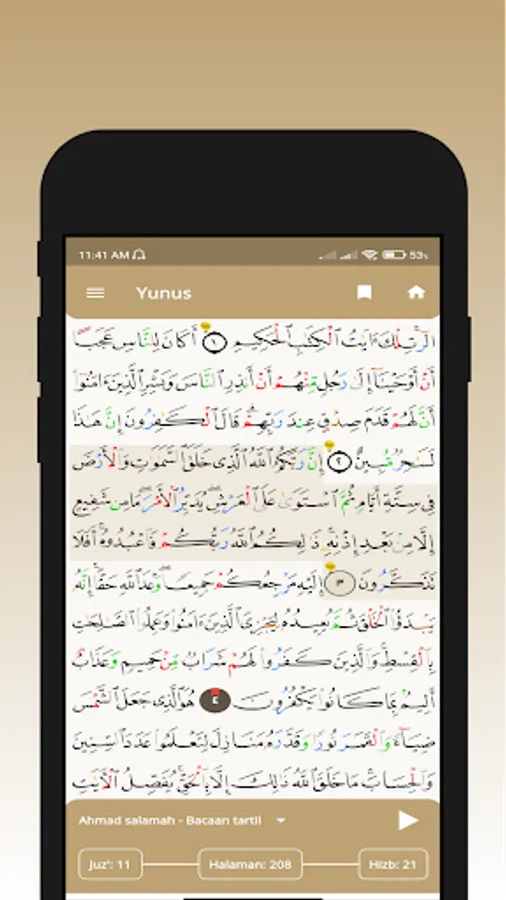 11:41 AM 53%
Yunus
الٓرۚ تِلْكَ ءَايَٰتُ ٱلْكِتَٰبِ ٱلْحَكِيمِ ١ أَكَانَ لِلنَّاسِ عَجَبًا
أَنْ أَوْحَيْنَآ إِلَىٰ رَجُلٍ مِّنْهُمْ أَنْ أَنذِرِ ٱلنَّاسَ وَبَشِّرِ ٱلَّذِينَ ءَامَنُوٓا۟
أَنَّ لَهُمْ قَدَمَ صِدْقٍ عِندَ رَبِّهِمْ ۗ قَالَ ٱلْكَٰفِرُونَ إِنَّ هَٰذَا
لَسَٰحِرٌ مُّبِينٌ ٢ إِنَّ رَبَّكُمُ ٱللَّهُ ٱلَّذِى خَلَقَ ٱلسَّمَٰوَٰتِ وَٱلْأَرْضَ
فِى سِتَّةِ أَيَّامٍ ثُمَّ ٱسْتَوَىٰ عَلَى ٱلْعَرْشِ ۖ يُدَبِّرُ ٱلْأَمْرَ ۖ مَا مِن شَفِيعٍ
إِلَّا مِنۢ بَعْدِ إِذْنِهِۦ ۚ ذَٰلِكُمُ ٱللَّهُ رَبُّكُمْ فَٱعْبُدُوهُ ۚ أَفَلَا
تَذَكَّرُونَ ٣ إِلَيْهِ مَرْجِعُكُمْ جَمِيعًا ۖ وَعْدَ ٱللَّهِ حَقًّا ۚ إِنَّهُۥ
يَبْدَؤُا۟ ٱلْخَلْقَ ثُمَّ يُعِيدُهُۥ لِيَجْزِىَ ٱلَّذِينَ ءَامَنُوا۟ وَعَمِلُوا۟ ٱلصَّٰلِحَٰتِ
بِٱلْقِسْطِ ۚ وَٱلَّذِينَ كَفَرُوا۟ لَهُمْ شَرَابٌ مِّنْ حَمِيمٍ وَعَذَابٌ
أَلِيمٌۢ بِمَا كَانُوا۟ يَكْفُرُونَ ٤ هُوَ ٱلَّذِى جَعَلَ ٱلشَّمْسَ
ضِيَآءً وَٱلْقَمَرَ نُورًا وَقَدَّرَهُۥ مَنَازِلَ لِتَعْلَمُوا۟ عَدَدَ ٱلسِّنِينَ
وَٱلْحِسَابَ ۚ مَا خَلَقَ ٱللَّهُ ذَٰلِكَ إِلَّا بِٱلْحَقِّ ۚ يُفَصِّلُ ٱلْءَايَٰتِ
Ahmad salamah - Bacaan tartil
Juz': 11 Halaman: 208 Hizb: 21